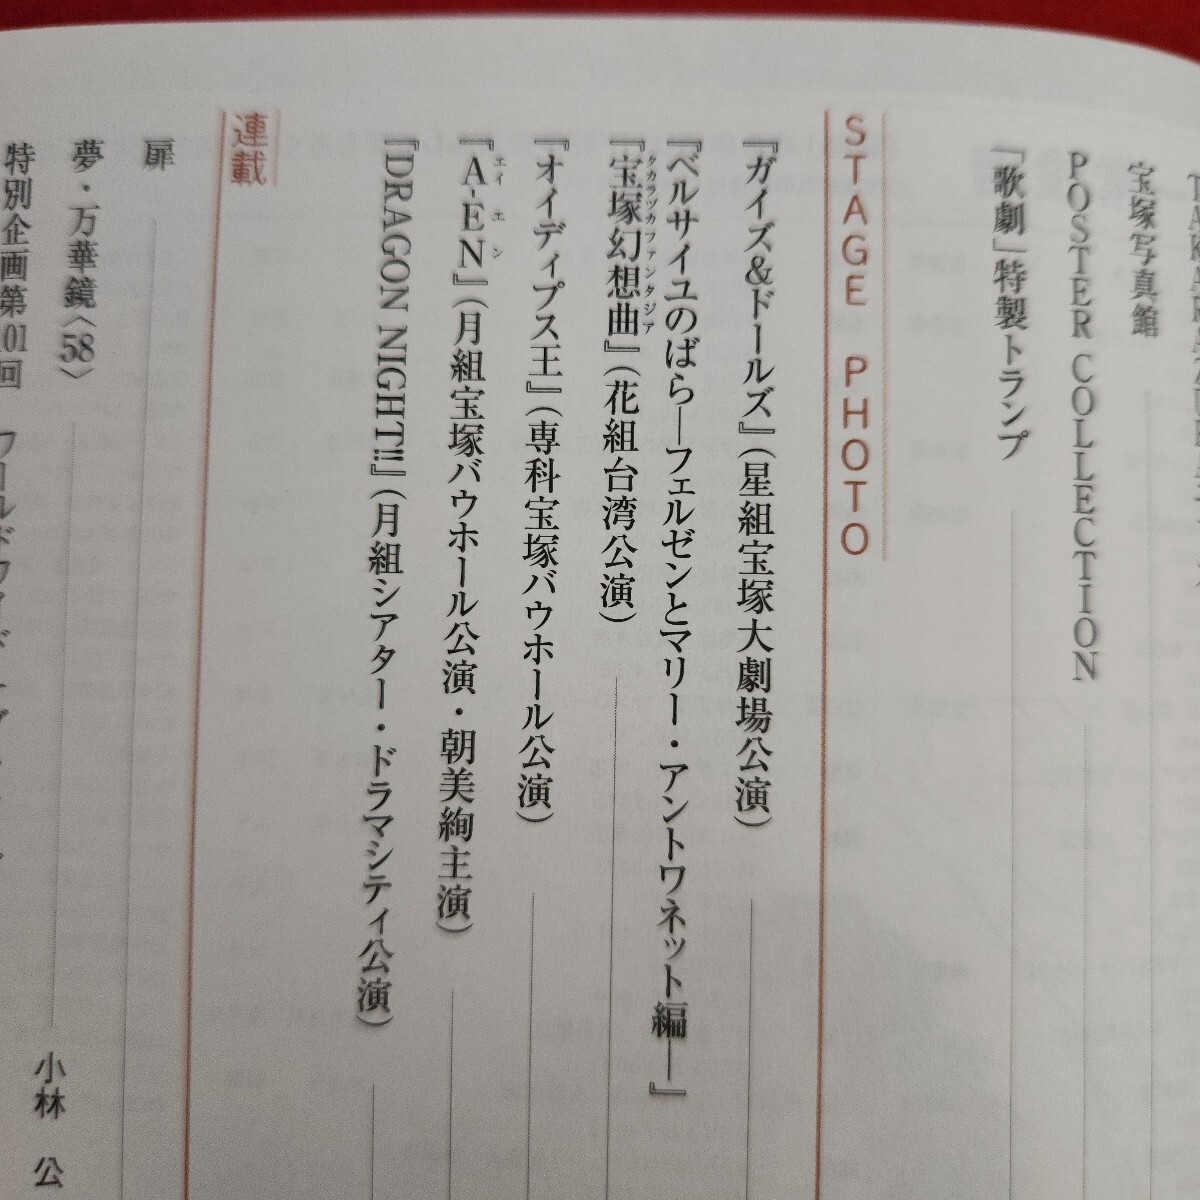 宝塚写真館
POSTER COLLECTION
「歌劇」特製トランプ
STAGE PHOTO
『ガイズ&ドールズ』(星組宝塚大劇場公演)
『ベルサイユのばら―フェルゼンとマリー・アントワネット編―』
『宝塚幻想曲』(花組台湾公演)
タカラヅカファンタジア
『オイディプス王』(専科宝塚バウホール公演)
『A-EN』(月組宝塚バウホール公演・朝美絢主演)
エイエン
『DRAGON NIGHT!!』(月組シアター・ドラマシティ公演)
連載
扉
夢・万華鏡〈58〉
小林 公
特別企画第101回